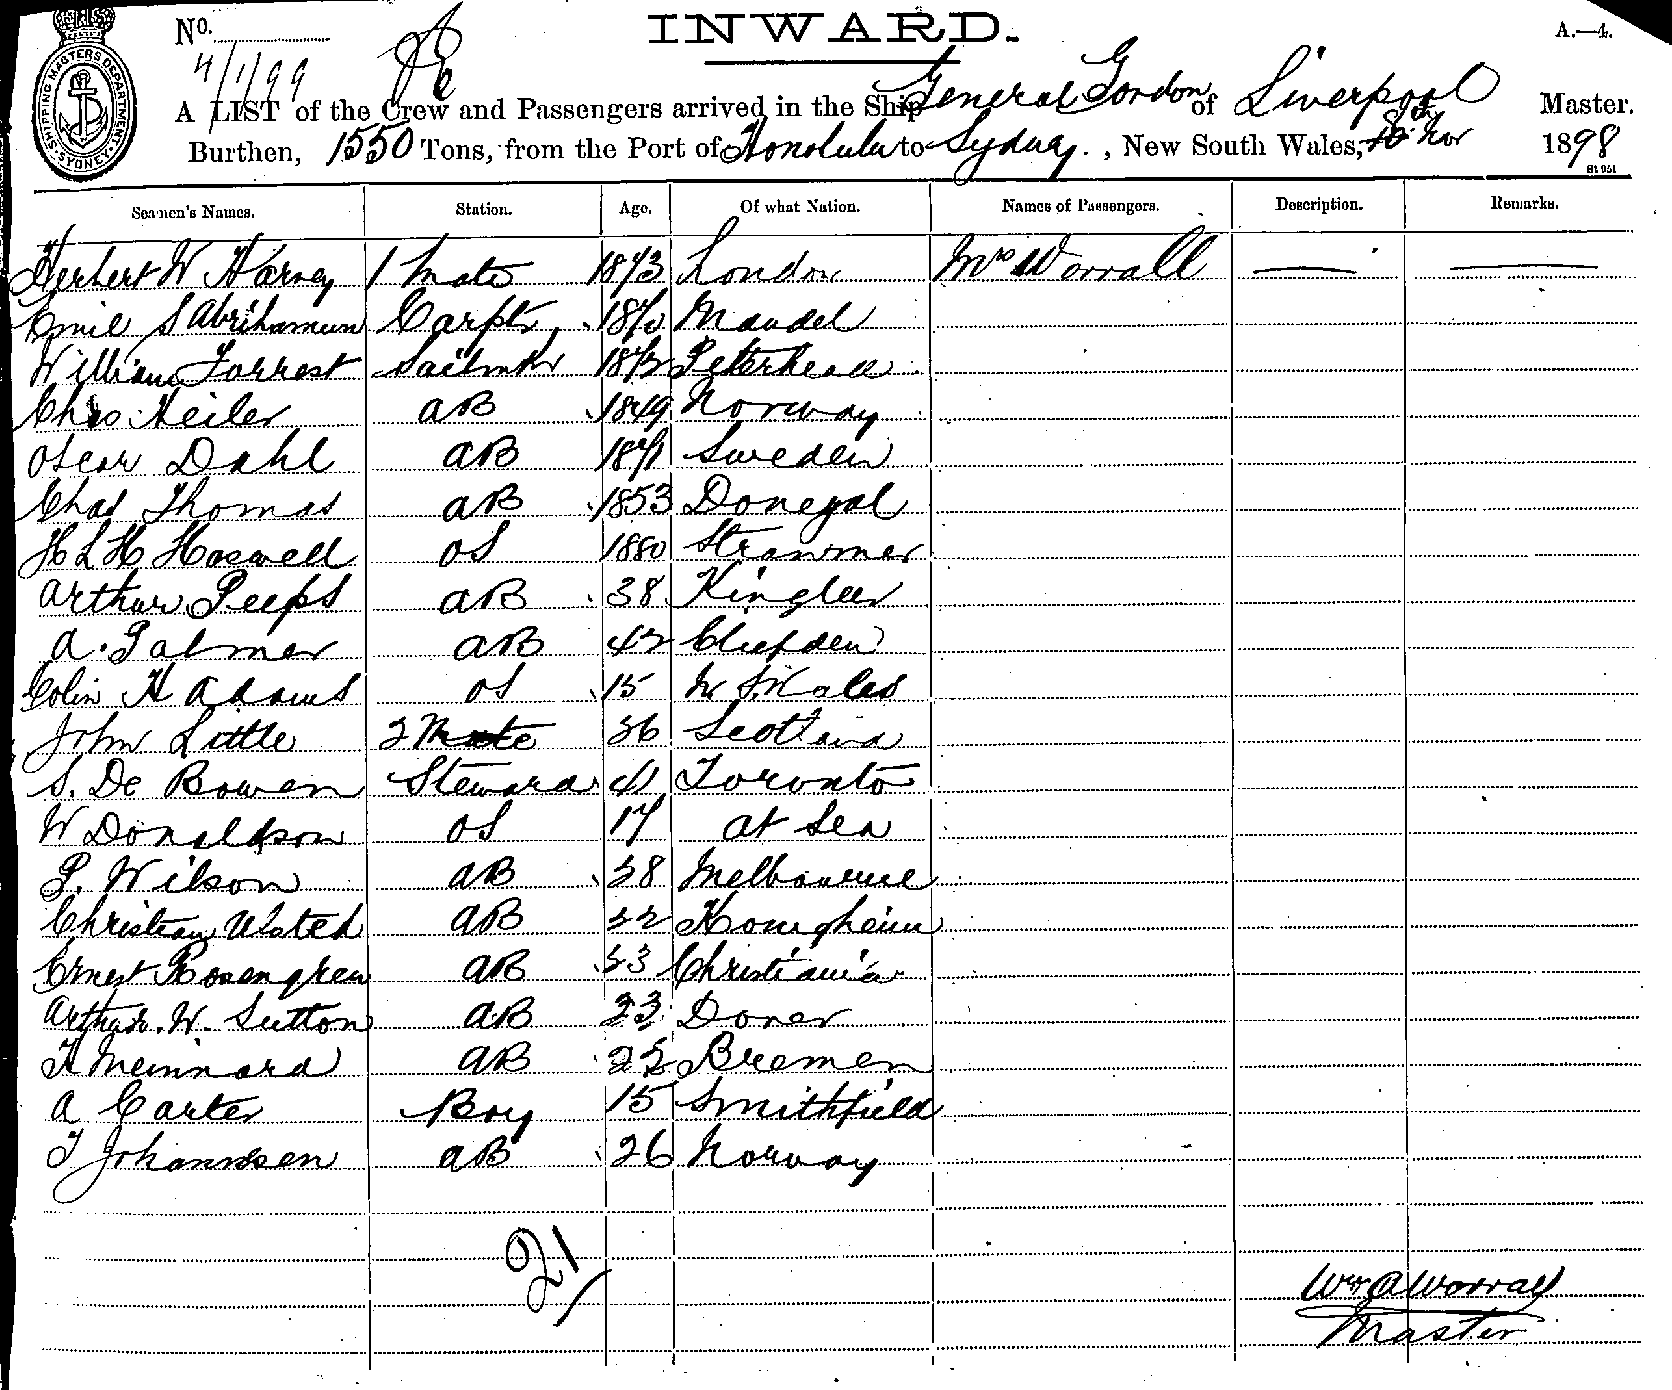 No.
INWARD.
A.—4.
4/1/99
SHIPPING MASTERS DEPARTMENT SYDNEY
A LIST of the Crew and Passengers arrived in the Ship General Gordon of Liverpool Master.
Burthen, 1550 Tons, from the Port of Honolulu to Sydney., New South Wales, Nov 1898
Seamen's Names. Station. Age. Of what Nation. Names of Passengers. Description. Remarks.
Herbert W Harvey 1 Mate 1873 London Mrs Worrall — —
Emil S Abrihamsen Carptr 1870 Mandel
William Forrest Sailmkr 1872 Peterhead
Chas Heiler AB 1849 Norway
Oscar Dahl AB 1871 Sweden
Chas Thomas AB 1853 Donegal
H L H Haswell OS 1880 Stranraer
Arthur Peeps AB 38
A. Palmer AB 42
Colin H Adams OS 15 N S. Wales
John Little 2 Mate 36 Scotland
S. De Bowen Steward 41 Toronto
W Donaldson OS 17 at Sea
P. Wilson AB 38 Melbourne
Christian Ulsted AB 22
Ernest Rosengren AB 23 Christiania
Arthur. W. Sutton AB 23 Dover
H Meinnard AB 22 Bremen
A Carter Boy 15 Smithfield
J Johannesen AB 26 Norway
21/
Wm A Worrall
Master